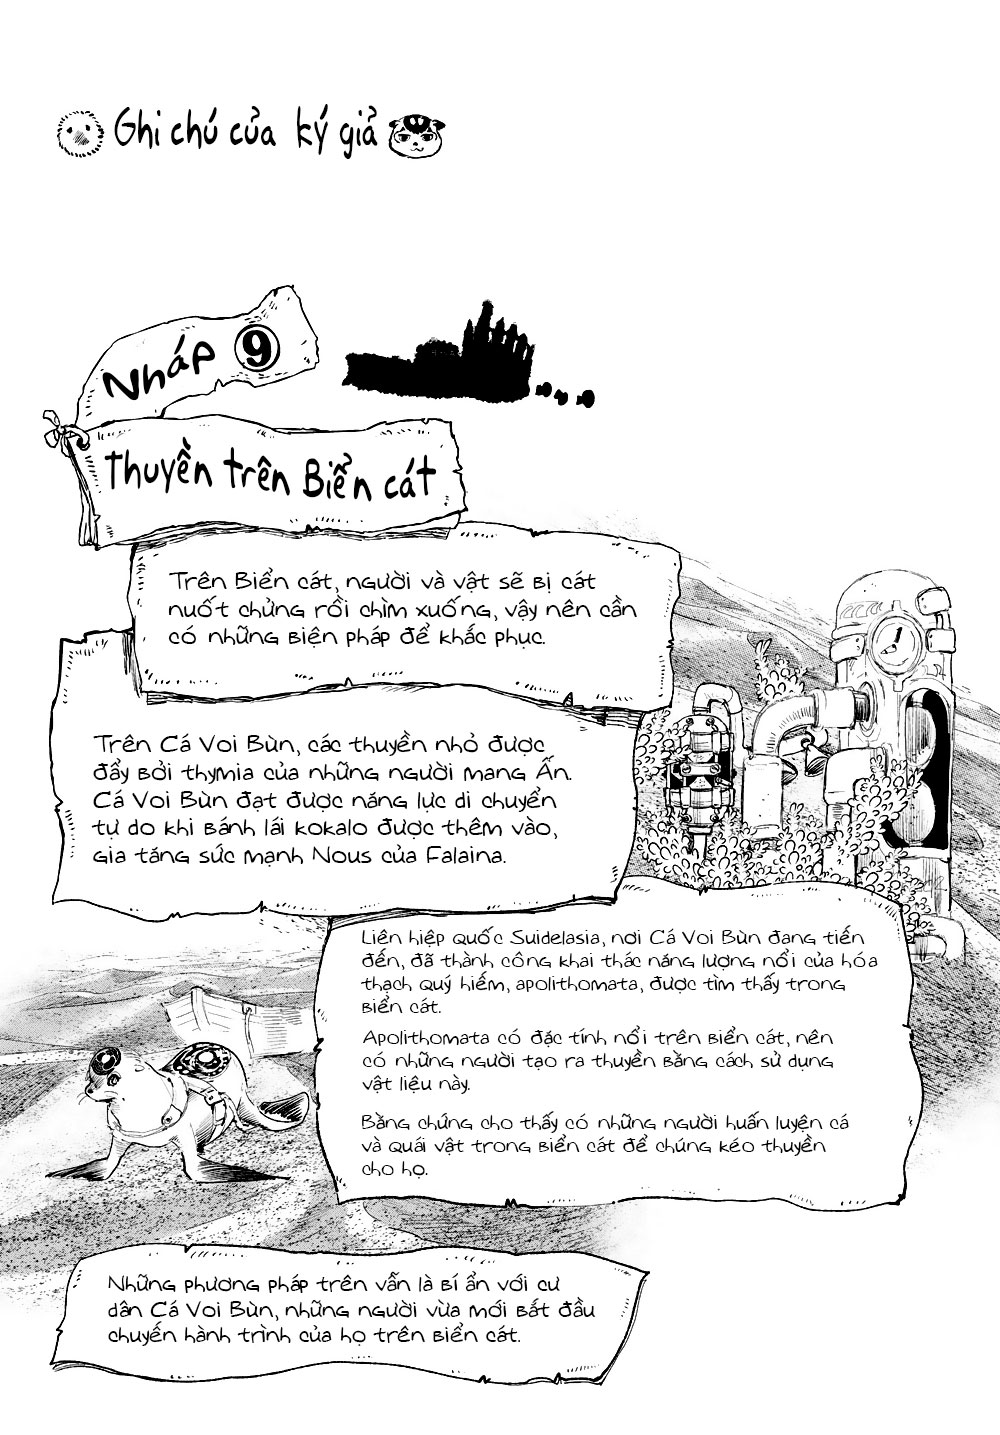 Ghi chú của ký giả
Nháp 9
Thuyền trên Biển cát
Trên Biển cát, người và vật sẽ bị cát
nuốt chửng rồi chìm xuống, vậy nên cần
có những biện pháp để khắc phục.
Trên Cá Voi Bùn, các thuyền nhỏ được
đẩy bởi thymia của những người mang Ấn.
Cá Voi Bùn đạt được năng lực di chuyển
tự do khi bánh lái kokalo được thêm vào,
gia tăng sức mạnh Nous của Falaina.
Liên hiệp quốc Suidelasia, nơi Cá Voi Bùn đang tiến
đến, đã thành công khai thác năng lượng nổi của hóa
thạch quý hiếm, apolithomata, được tìm thấy trong
biển cát.
Apolithomata có đặc tính nổi trên biển cát, nên
có những người tạo ra thuyền bằng cách sử dụng
vật liệu này.
Bằng chứng cho thấy có những người huấn luyện cá
và quái vật trong biển cát để chúng kéo thuyền
cho họ.
Những phương pháp trên vẫn là bí ẩn với cư
dân Cá Voi Bùn, những người vừa mới bắt đầu
chuyến hành trình của họ trên biển cát.